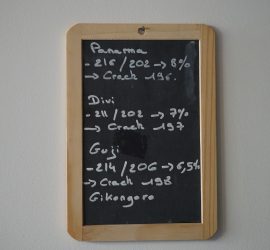 Panama
- 216 / 202 → 8%
→ Crack 196.
Divi
- 211 / 202 → 7%
→ Crack 197
Guji
- 214 / 206 → 6,5%
→ Crack 198
Gikongoro